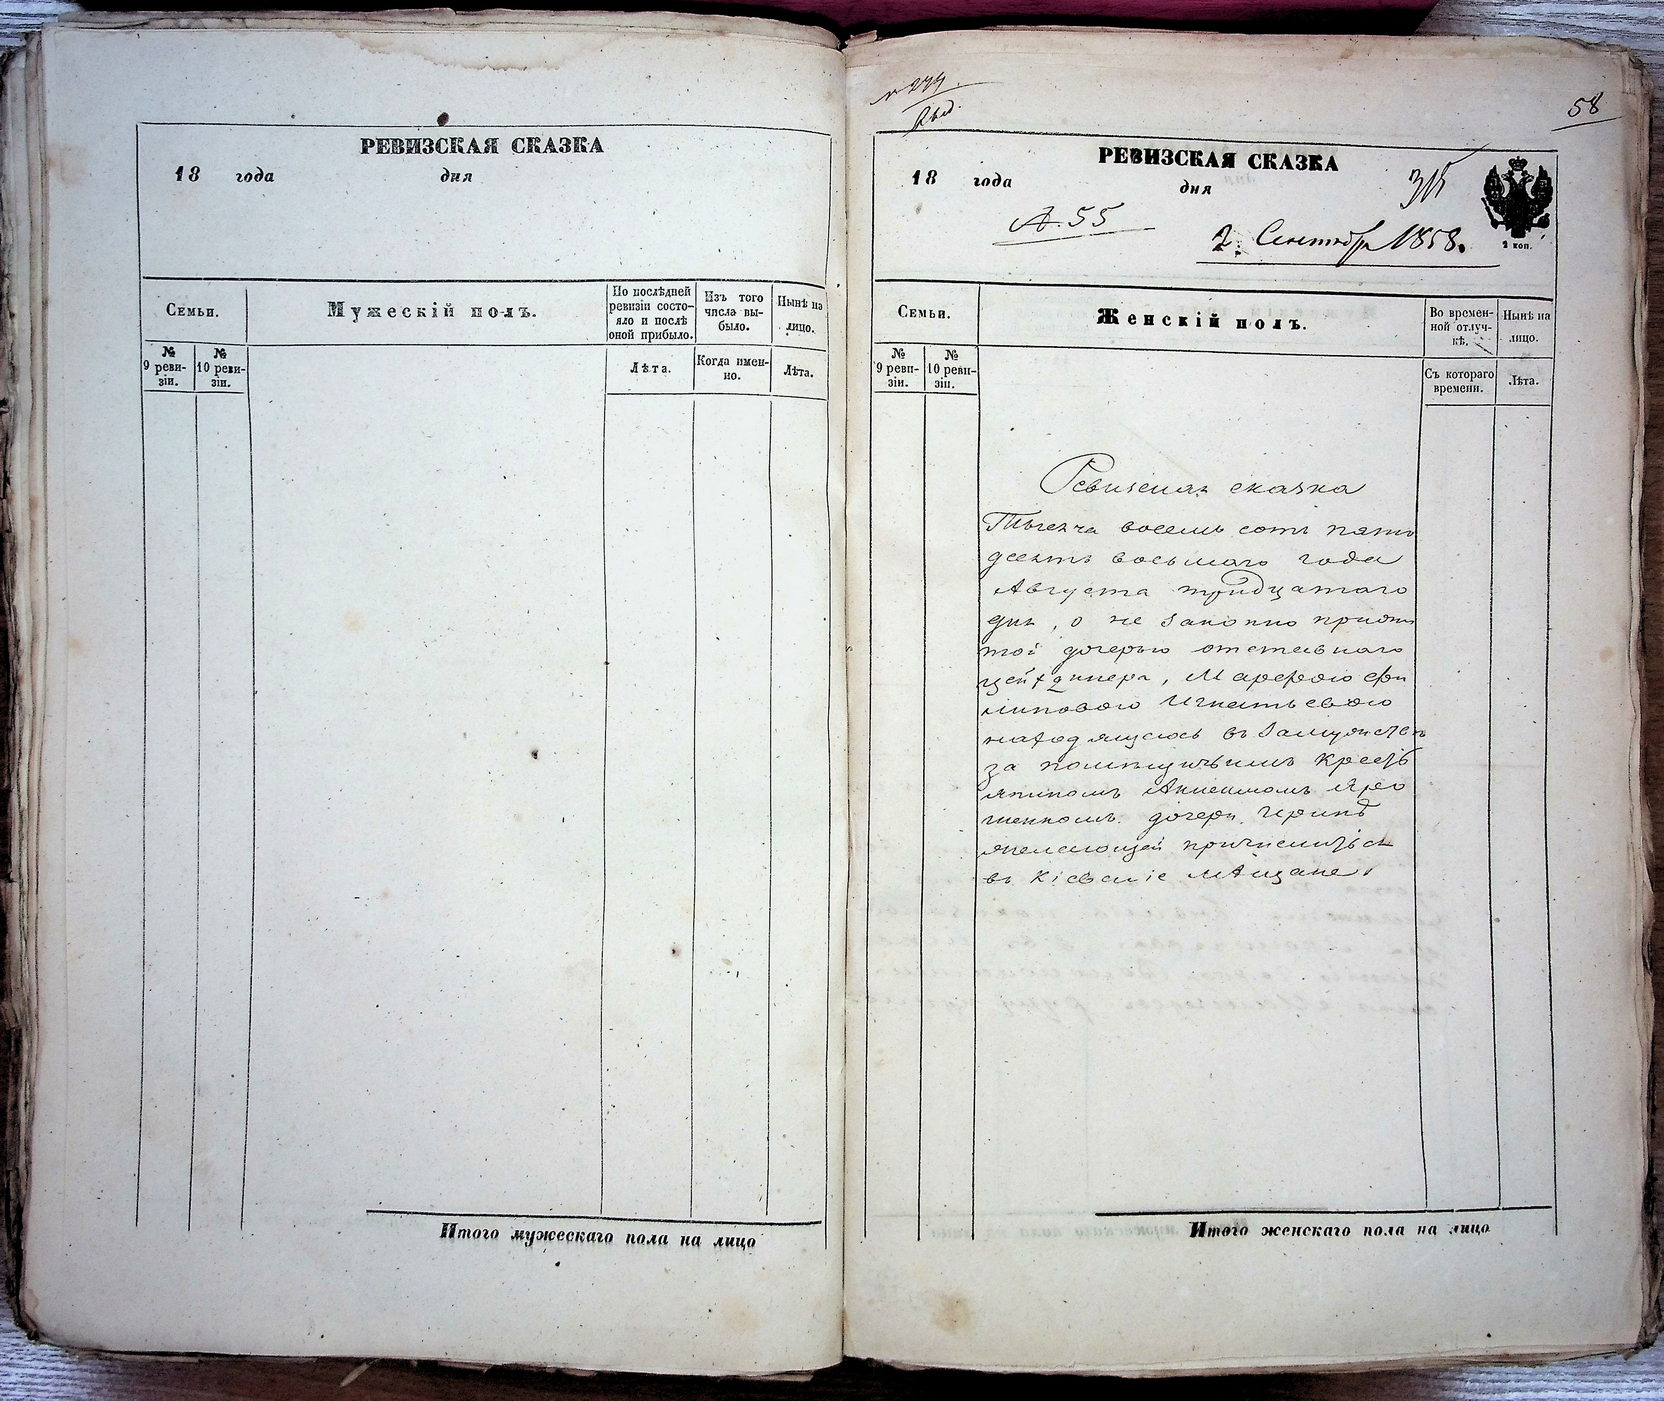 РЕВИЗСКАЯ СКАЗКА
18 года дня
Семьи.
Мужескій полъ.
По послѣдней ревизіи состояло и послѣ оной прибыло.
Изъ того числа выбыло.
Нынѣ на лицо.
№ 9 ревизіи.
№ 10 ревизіи.
Лѣта.
Когда именно.
Лѣта.
Итого мужескаго пола на лицо
58
РЕВИЗСКАЯ СКАЗКА
18 года дня
№ 55
2 Сентября 1858.
2 коп.
Семьи.
Женскій полъ.
Во временной отлучкѣ.
Нынѣ на лицо.
№ 9 ревизіи.
№ 10 ревизіи.
Съ котораго времени.
Лѣта.
Ревизская сказка
Тысяча восемь сотъ пять
десятъ восьмаго года
Августа тридцатаго
дня, о не законно прижи
той дочерью отставнаго
цейхдинера, Марфою Фи
липовою Игнатьевою
находящуюсь въ замужствѣ
за помѣщичьимъ кресть
яниномъ
дочери Иринѣ
желающей причислиться
въ Кіевскіе мѣщане.
Итого женскаго пола на лицо